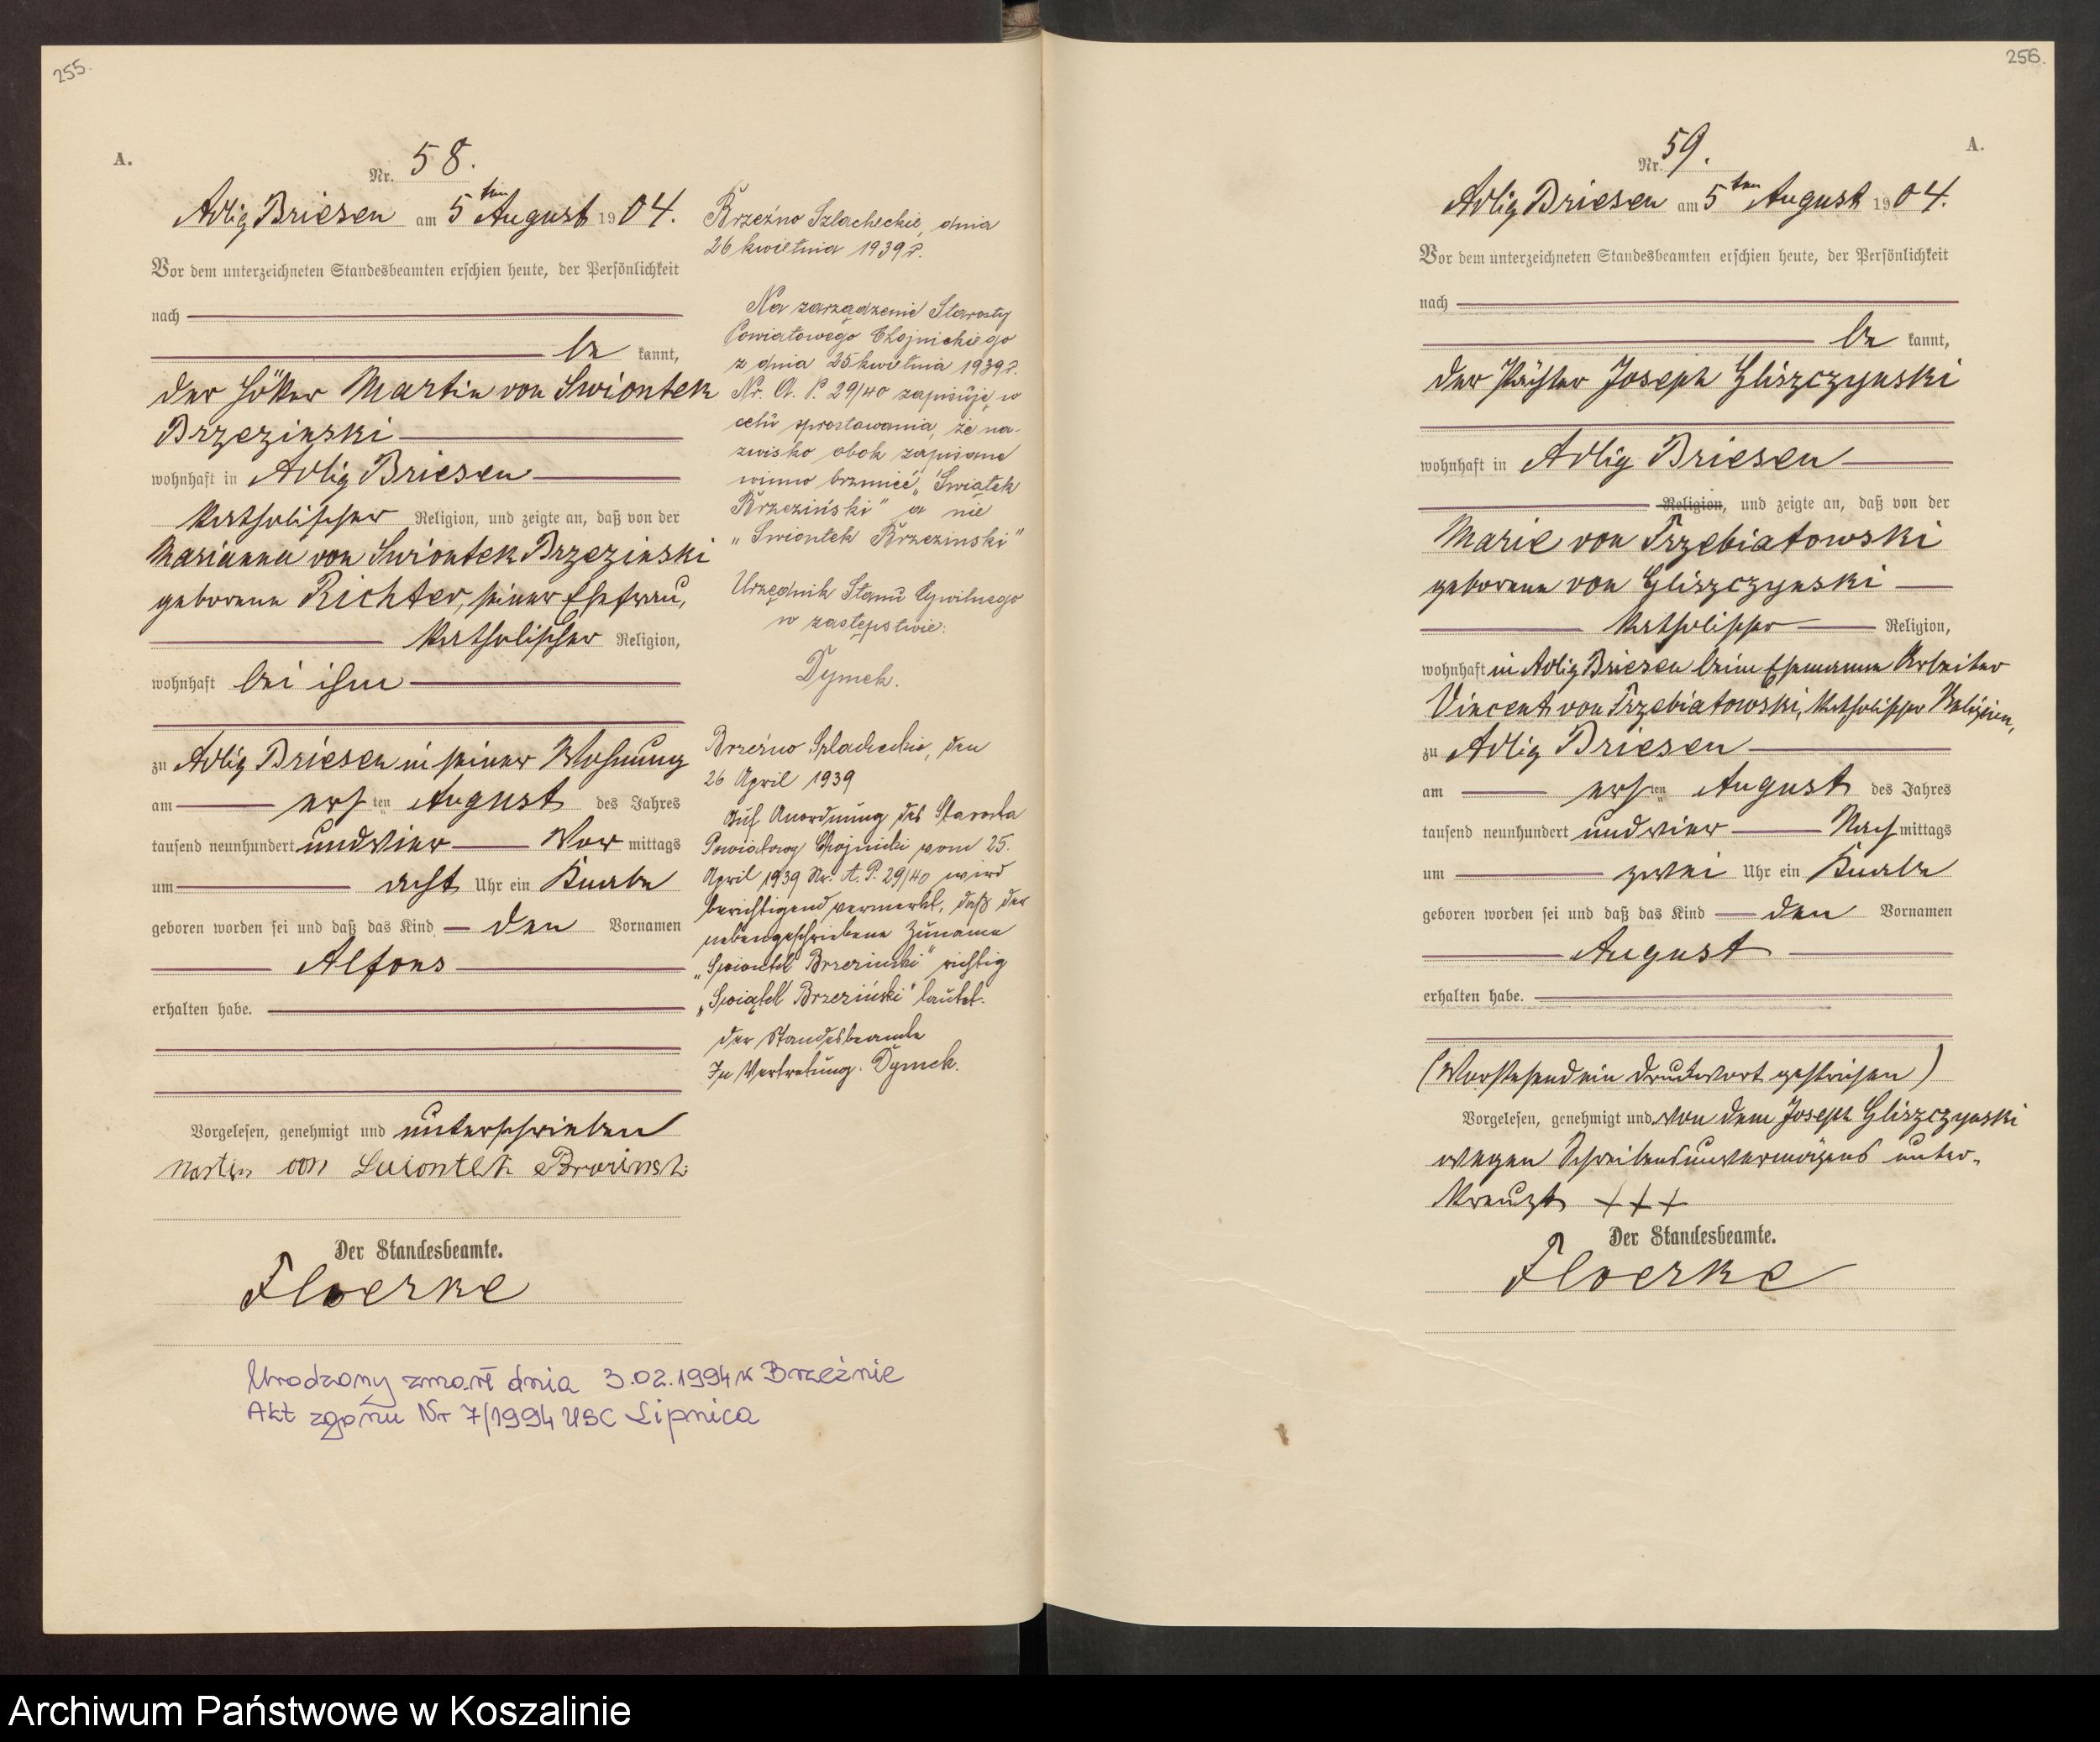 255.
A.
Nr. 58.
Adlig Briesen am 5ten August 1904.
Vor dem unterzeichneten Standesbeamten erschien heute, der Persönlichkeit
nach
be kannt,
der Höker Martin von Swiontek
Brzezinski
wohnhaft in Adlig Briesen
katholischer Religion, und zeigte an, daß von der
Marianna von Swiontek Brzezinski
geborene Richter, seiner Ehefrau,
katholischer Religion,
wohnhaft bei ihm
zu Adlig Briesen in seiner Wohnung
am ersten August des Jahres
tausend neunhundert und vier Vor mittags
um acht Uhr ein Knabe
geboren worden sei und daß das Kind den Vornamen
Alfons
erhalten habe.
Vorgelesen, genehmigt und unterschrieben
Martin von Swiontek
Der Standesbeamte.
Floerke
Urodzony zmarł dnia 3.02.1994 w Brzeźnie
Akt zgonu Nr 7/1994 USC Lipnica
Brzeźno Szlacheckie, dnia
26 kwietnia 1939 r.
Na zarządzenie Starosty
Powiatowego Chojnickiego
z dnia 25 kwietnia 1939 r.
Nr. A. P. 29/40 zapisuję w
celu sprostowania, że na-
zwisko obok zapisane
winno brzmieć „Świątek
Brzeziński” a nie
„Swiontek Brzezinski”
Urzędnik Stanu Cywilnego
w zastępstwie:
Dymek.
Brzeźno Szlacheckie, den
26 April 1939
Auf Anordnung des Starosta
Powiatowy Chojnicki vom 25.
April 1939 Nr. A. P. 29/40 wird
berichtigend vermerkt, daß der
nebengeschriebene Zuname
„Swiontek Brzezinski” richtig
„Świątek Brzeziński” lautet.
der Standesbeamte
In Vertretung. Dymek.
256.
A.
Nr. 59.
Adlig Briesen am 5ten August 1904.
Vor dem unterzeichneten Standesbeamten erschien heute, der Persönlichkeit
nach
be kannt,
der Pächter Joseph Gliszczynski
wohnhaft in Adlig Briesen
Religion, und zeigte an, daß von der
Marie von Trzebiatowski
geborene von Gliszczynski
katholischer Religion,
wohnhaft in Adlig Briesen beim Ehemanne Arbeiter
Vincent von Trzebiatowski, katholischer Religion,
zu Adlig Briesen
am ersten August des Jahres
tausend neunhundert und vier Nach mittags
um zwei Uhr ein Knabe
geboren worden sei und daß das Kind den Vornamen
August
erhalten habe.
(Vorstehend ein Druckwort gestrichen)
Vorgelesen, genehmigt und von dem Joseph Gliszczynski
wegen Schreibensunvermögens unter-
kreuzt +++
Der Standesbeamte.
Floerke
Archiwum Państwowe w Koszalinie